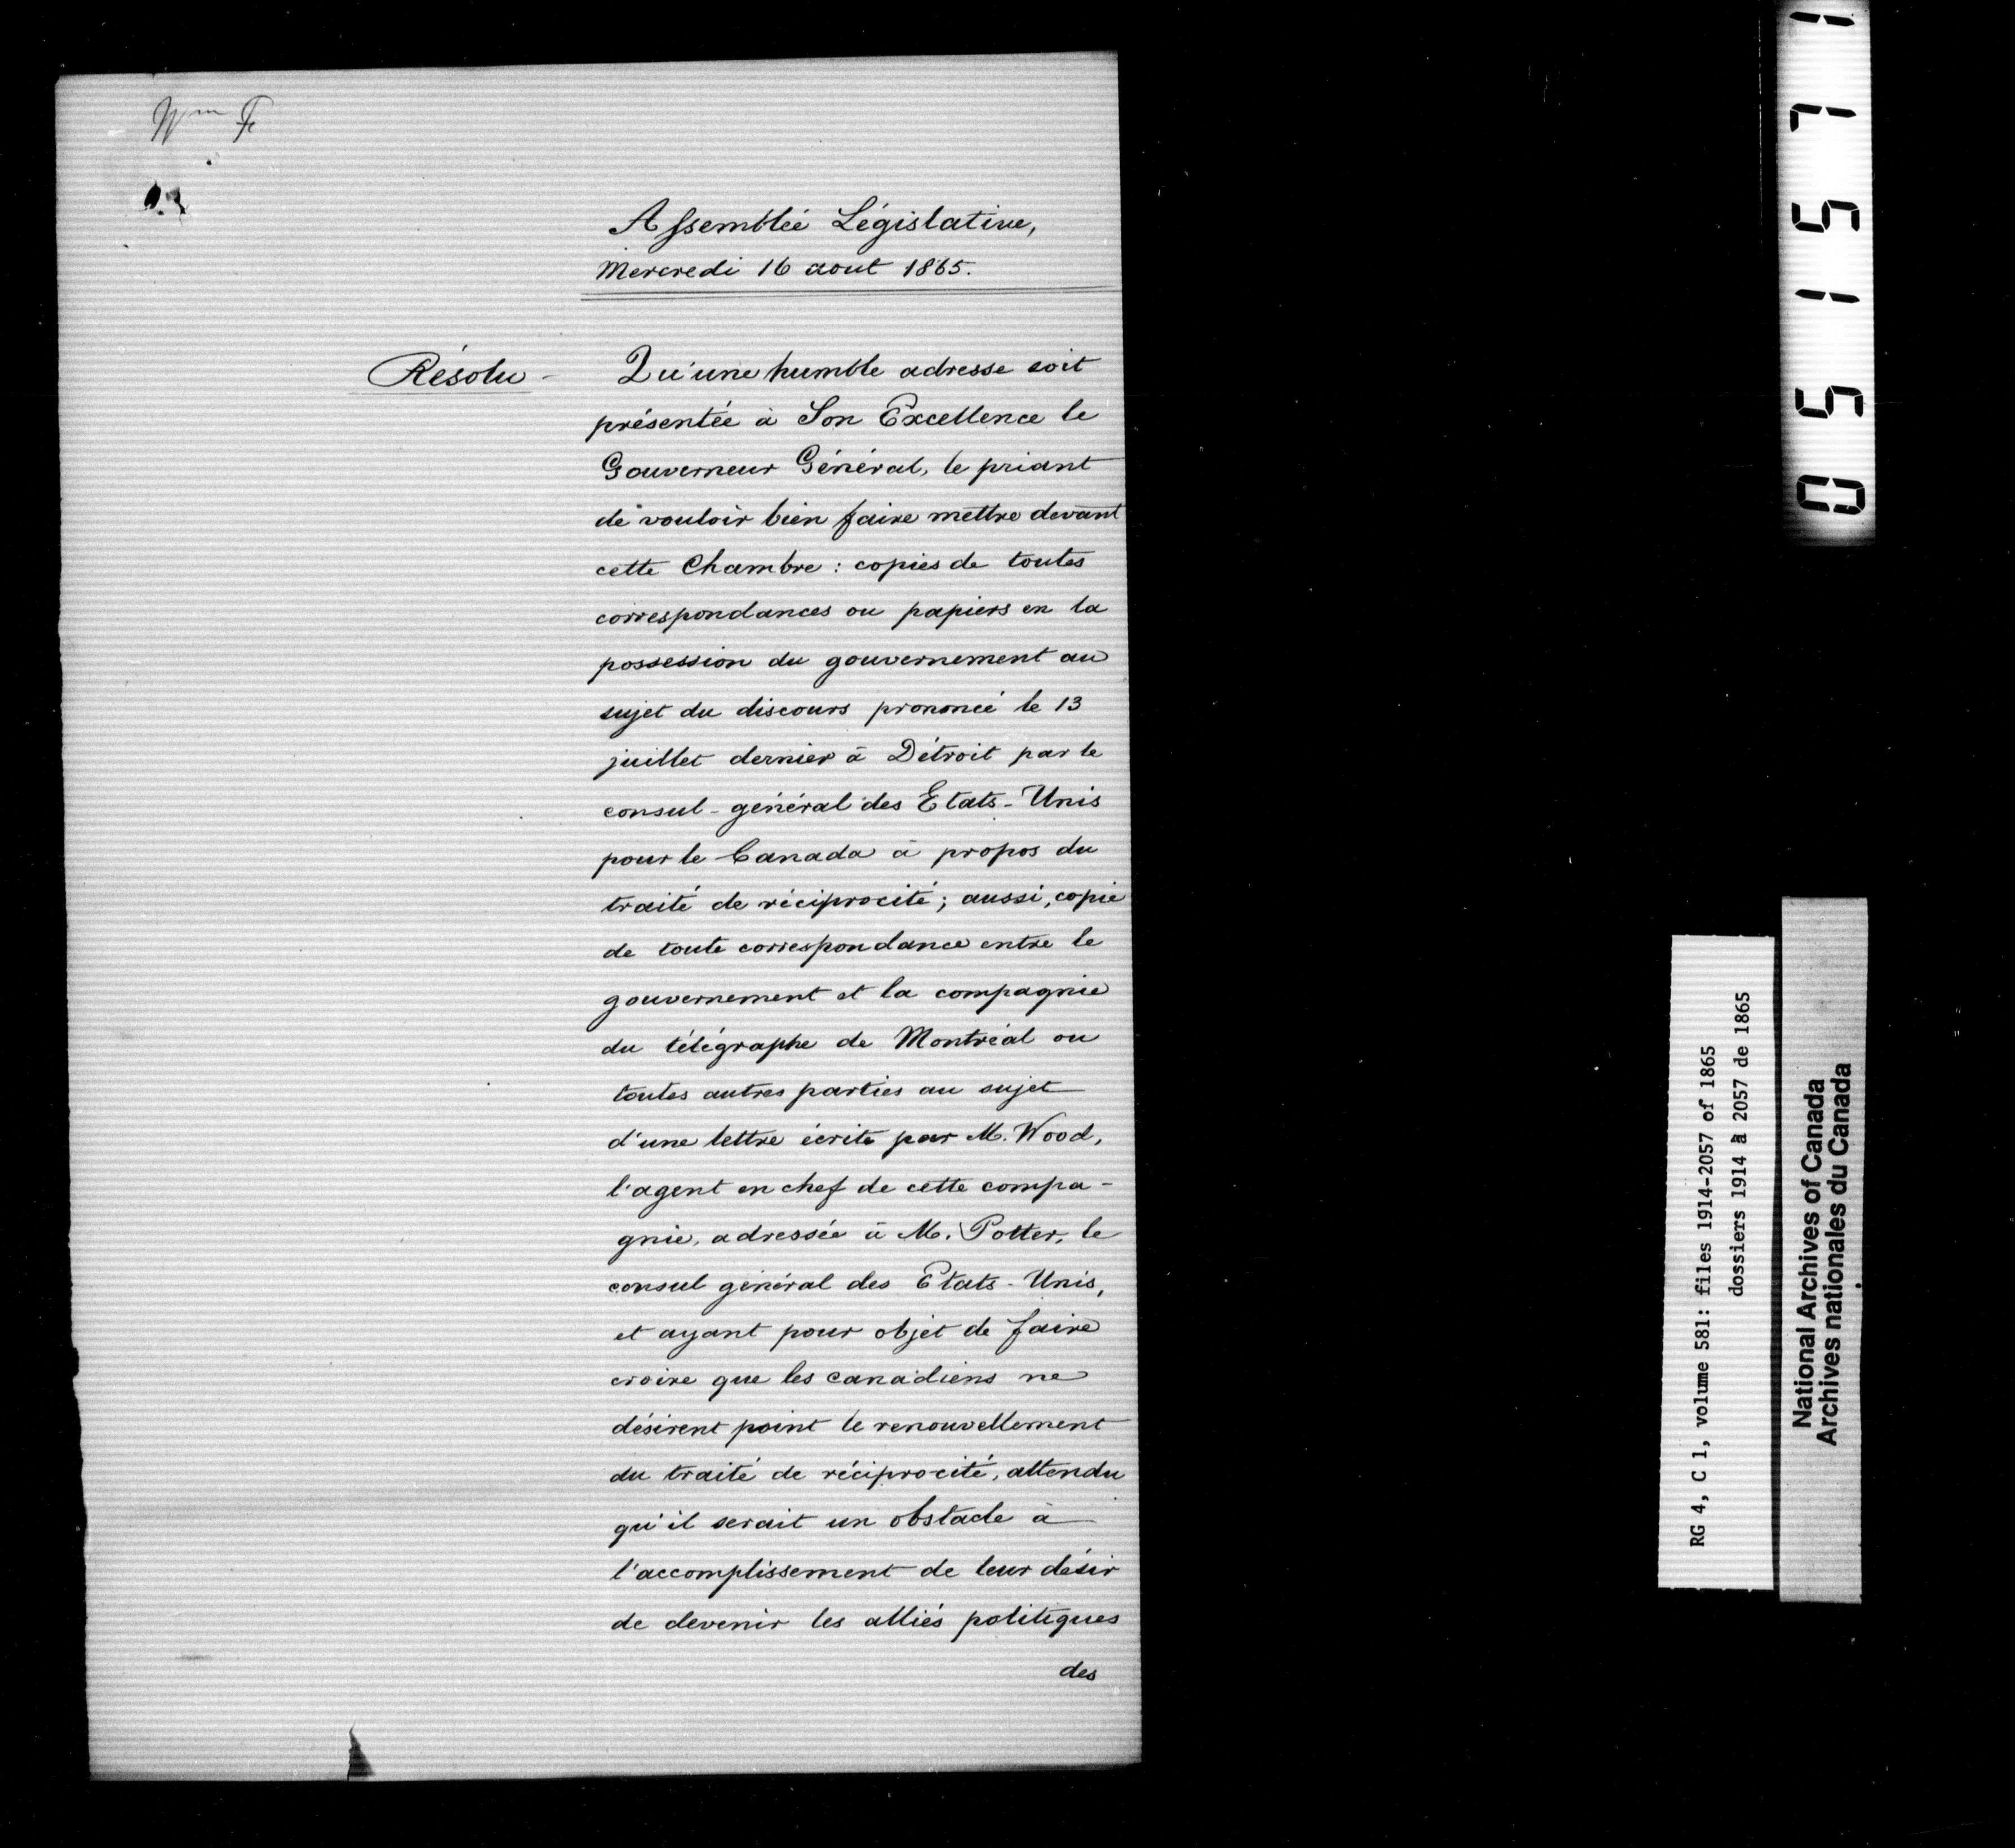 Wm F
Assemblée Législative,
Mercredi 16 aout 1865.
Résolu - Qu'une humble adresse soit
présentée à Son Excellence le
Gouverneur Général, le priant
de vouloir bien faire mettre devant
cette Chambre : copies de toutes
correspondances ou papiers en la
possession du gouvernement au
sujet du discours prononcé le 13
juillet dernier à Détroit par le
consul-général des Etats-Unis
pour le Canada à propos du
traité de réciprocité ; aussi, copie
de toute correspondance entre le
gouvernement et la compagnie
du télégraphe de Montréal ou
toutes autres parties au sujet
d'une lettre écrite par M. Wood,
l'agent en chef de cette compa-
gnie, adressée à M. Potter, le
consul général des Etats-Unis,
et ayant pour objet de faire
croire que les canadiens ne
désirent point le renouvellement
du traité de réciprocité, attendu
qu'il serait un obstacle à
l'accomplissement de leur désir
de devenir les alliés politiques
des
051571
RG 4, C 1, volume 581: files 1914-2057 of 1865
dossiers 1914 à 2057 de 1865
National Archives of Canada
Archives nationales du Canada